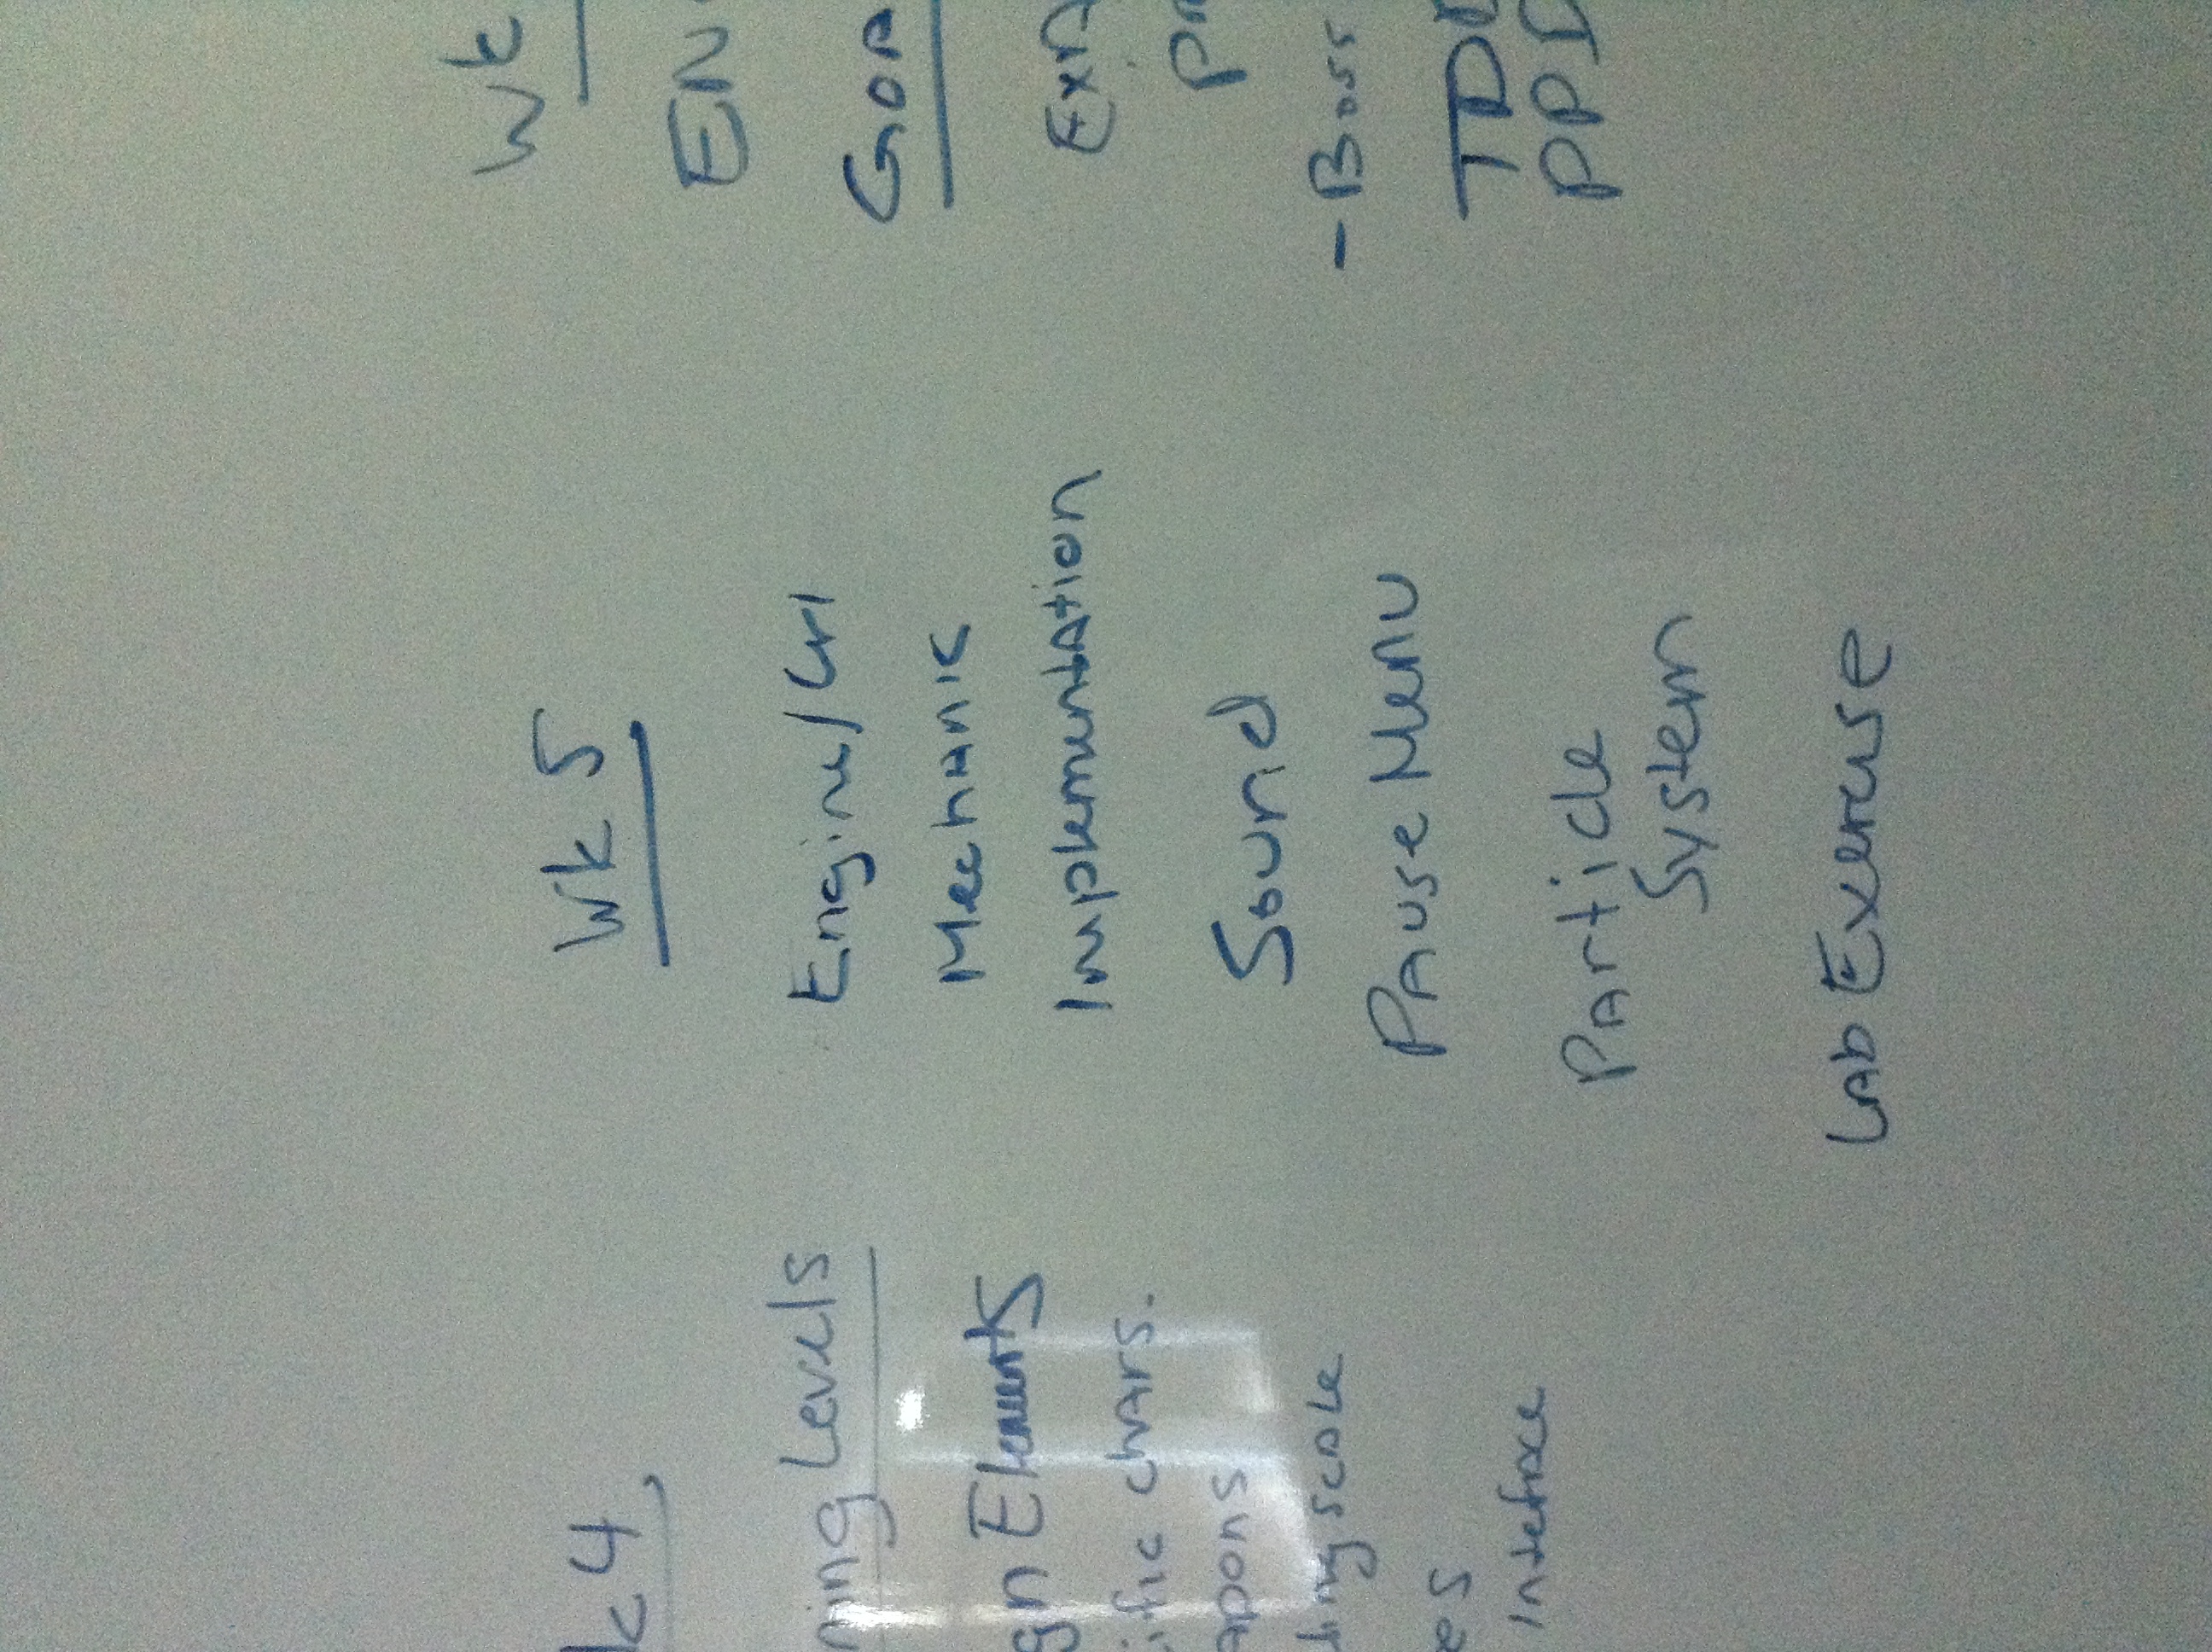 k 4
ning Levels
gn Elements
ific chars.
apons
ding scale
es
Inteface
Wk 5
Engine/
Mechanic
Implementation
Sound
Pause Menu
Particle
System
Lab Exercise
Wk
EN
GOA
ExA
pr
- Boss
TDD
PPD